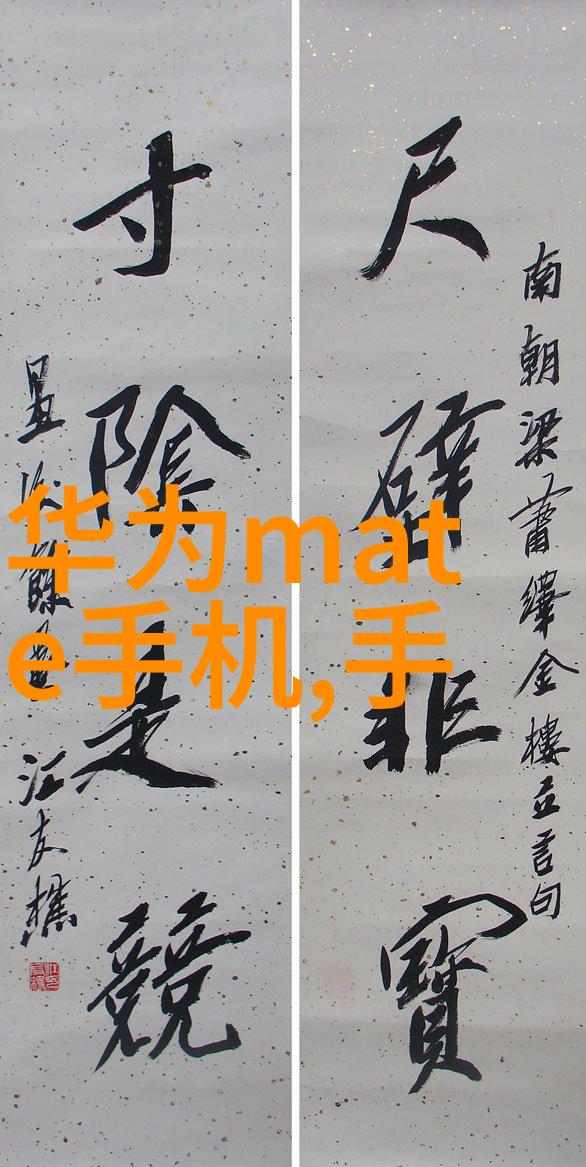 南朝梁蕭繹金樓立言句
尺璧非寶
寸陰是競
汪友樵
华为mat
e手机,手